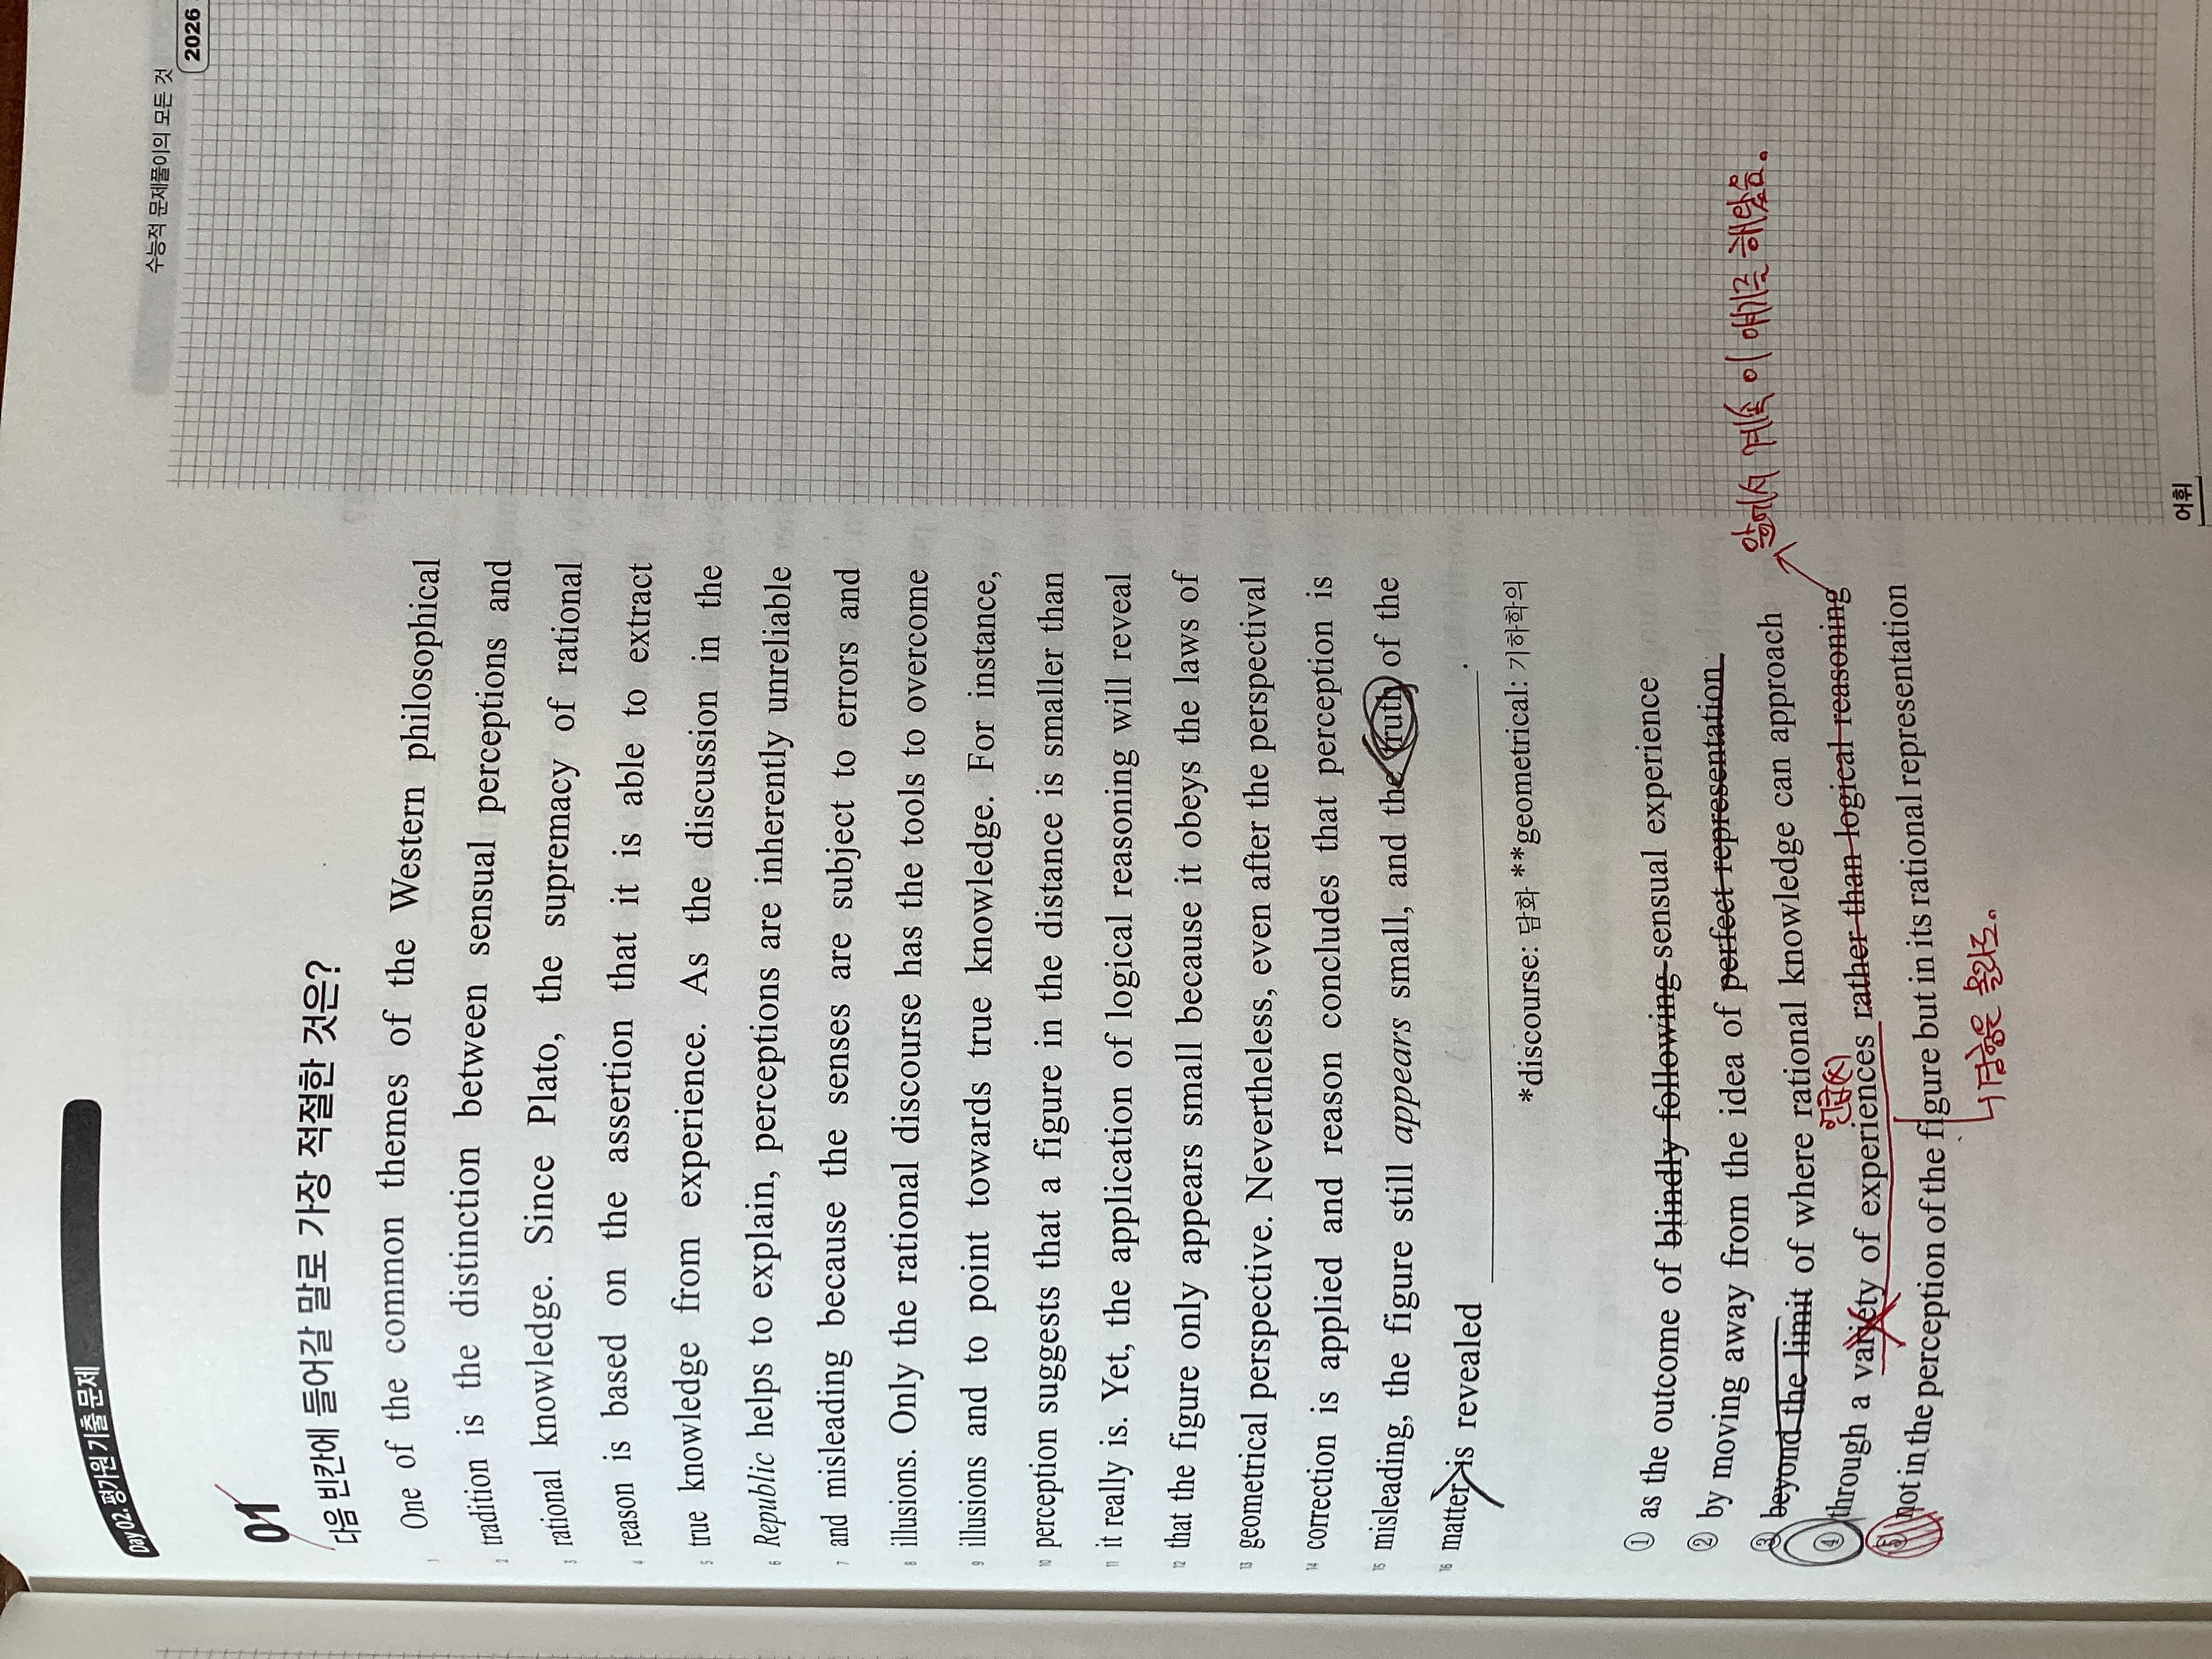 수능적 문제풀이의 모든 것
2026
Day 02. 평가원 기출 문제
01
다음 빈칸에 들어갈 말로 가장 적절한 것은?
1 One of the common themes of the Western philosophical
2 tradition is the distinction between sensual perceptions and
3 rational knowledge. Since Plato, the supremacy of rational
4 reason is based on the assertion that it is able to extract
5 true knowledge from experience. As the discussion in the
6 Republic helps to explain, perceptions are inherently unreliable
7 and misleading because the senses are subject to errors and
8 illusions. Only the rational discourse has the tools to overcome
9 illusions and to point towards true knowledge. For instance,
10 perception suggests that a figure in the distance is smaller than
11 it really is. Yet, the application of logical reasoning will reveal
12 that the figure only appears small because it obeys the laws of
13 geometrical perspective. Nevertheless, even after the perspectival
14 correction is applied and reason concludes that perception is
15 misleading, the figure still appears small, and the truth of the
16 matter is revealed ________.
*discourse: 담화 **geometrical: 기하학의
① as the outcome of blindly following sensual experience
② by moving away from the idea of perfect representation
③ beyond the limit of where rational knowledge can approach
앞에서 계속 이 얘기를 해왔음.
언급(X)
④ through a variety of experiences rather than logical reasoning
⑤ not in the perception of the figure but in its rational representation
어휘